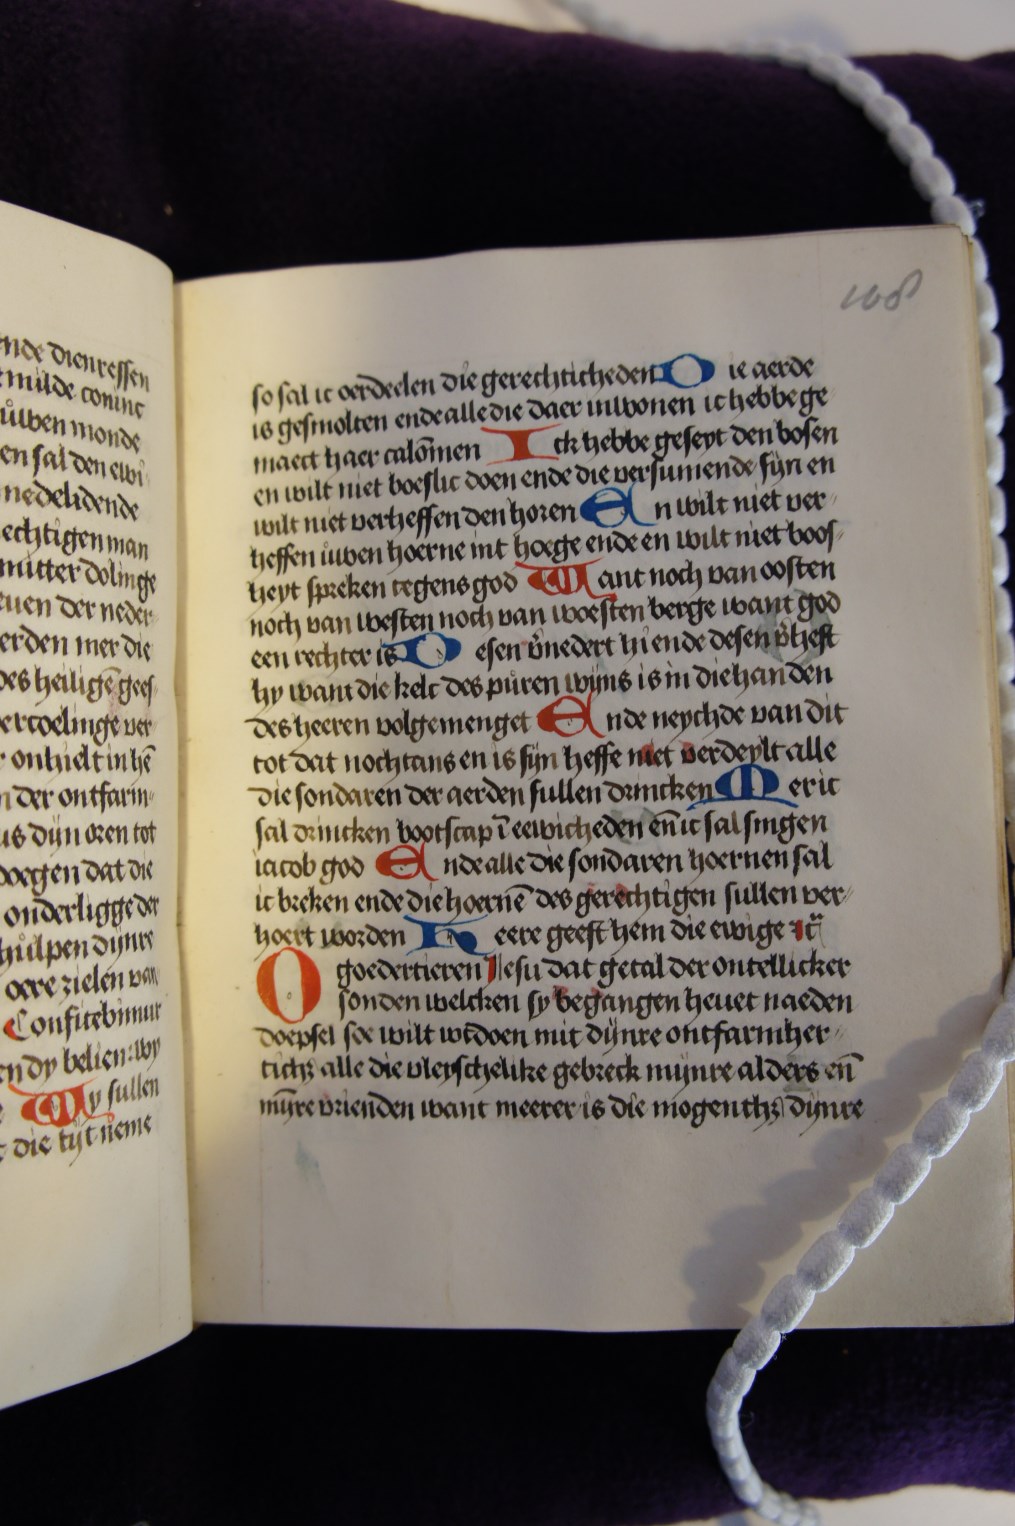 ende dienressen
milde coninc
uwen monde
en sal den ewi
medelidende
echtigen man
mitter dolinge
euen der neder-
erden mer die
des heiligē gees-
ertoelinge ver
onhielt in hē
der ontfarm-
us dijn oren tot
doegen dat die
onderligge der
hulpen dijnre
oere zielen van
Confitebimur
en dy belien: wy
Wy sullen
die tijt neme
108
so sal ic oerdeelen die gerechticheden Die aerde
is gesmolten ende alle die daer inwonen ic hebbe ge
maect haer calōmen Ick hebbe geseyt den bosen
en wilt niet boeslic doen ende die versumende sijn en
wilt niet verheffen den horen En wilt niet ver-
heffen uwen hoerne int hoege ende en wilt niet boos-
heyt spreken tegens god Want noch van oosten
noch van westen noch van woesten berge want god
een rechter is Desen v̄nedert hi ende desen v̄heft
hy want die kelc des puren wijns is in die handen
des heeren vol gemenget Ende neychde van dit
tot dat nochtans en is sijn heffe niet verdeylt alle
die sondaren der aerden sullen drincken Mer ic
sal drincken bootscap ī eewicheden eñ ic sal singen
iacob god Ende alle die sondaren hoernen sal
ic breken ende die hoernē des gerechtigen sullen ver-
hoert worden Heere geeft hem die ewige
O goedertieren Jesu dat getal der ontellicker
sonden welcken sy begangen heuet naeden
doepsel soe wilt wtdoen mit dijnre ontfarmher-
tichz alle die vleyschelike gebreck mijnre alders eñ
mijre vrienden want meerer is die mogenthz dijnre